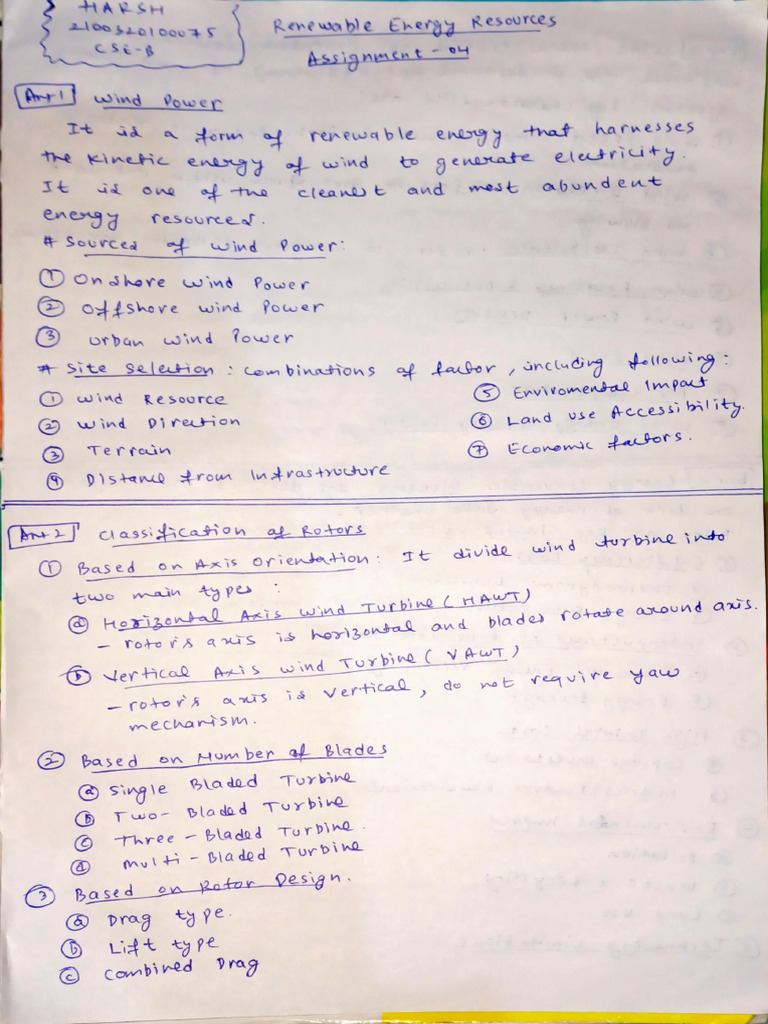 HARSH
2100320100075
CSE-B
Renewable Energy Resources
Assignment - 04
Ans 1 Wind Power
It is a form of renewable energy that harnesses
the kinetic energy of wind to generate electricity.
It is one of the cleanest and most abundent
energy resources.
# Sources of wind Power:
① Onshore Wind Power
② Offshore wind Power
③ Urban wind Power
# Site Selection : combinations of factor, including following :
① Wind Resource
② Wind Direction
③ Terrain
④ Distance from Infrastructure
⑤ Enviromental Impact
⑥ Land use Accessibility.
⑦ Economic factors.
Ans 2 Classification of Rotors
① Based on Axis Orientation : It divide wind turbine into
two main types :
ⓐ Horizontal Axis Wind Turbine (HAWT)
- rotor's axis is horizontal and blades rotate around axis.
ⓑ Vertical Axis Wind Turbine (VAWT)
- rotor's axis is vertical, do not require yaw
mechanism.
② Based on Number of Blades
ⓐ Single Bladed Turbine
ⓑ Two-Bladed Turbine
ⓒ Three-Bladed Turbine.
ⓓ Multi-Bladed Turbine
③ Based on Rotor Design.
ⓐ Drag type.
ⓑ Lift type
ⓒ Combined Drag